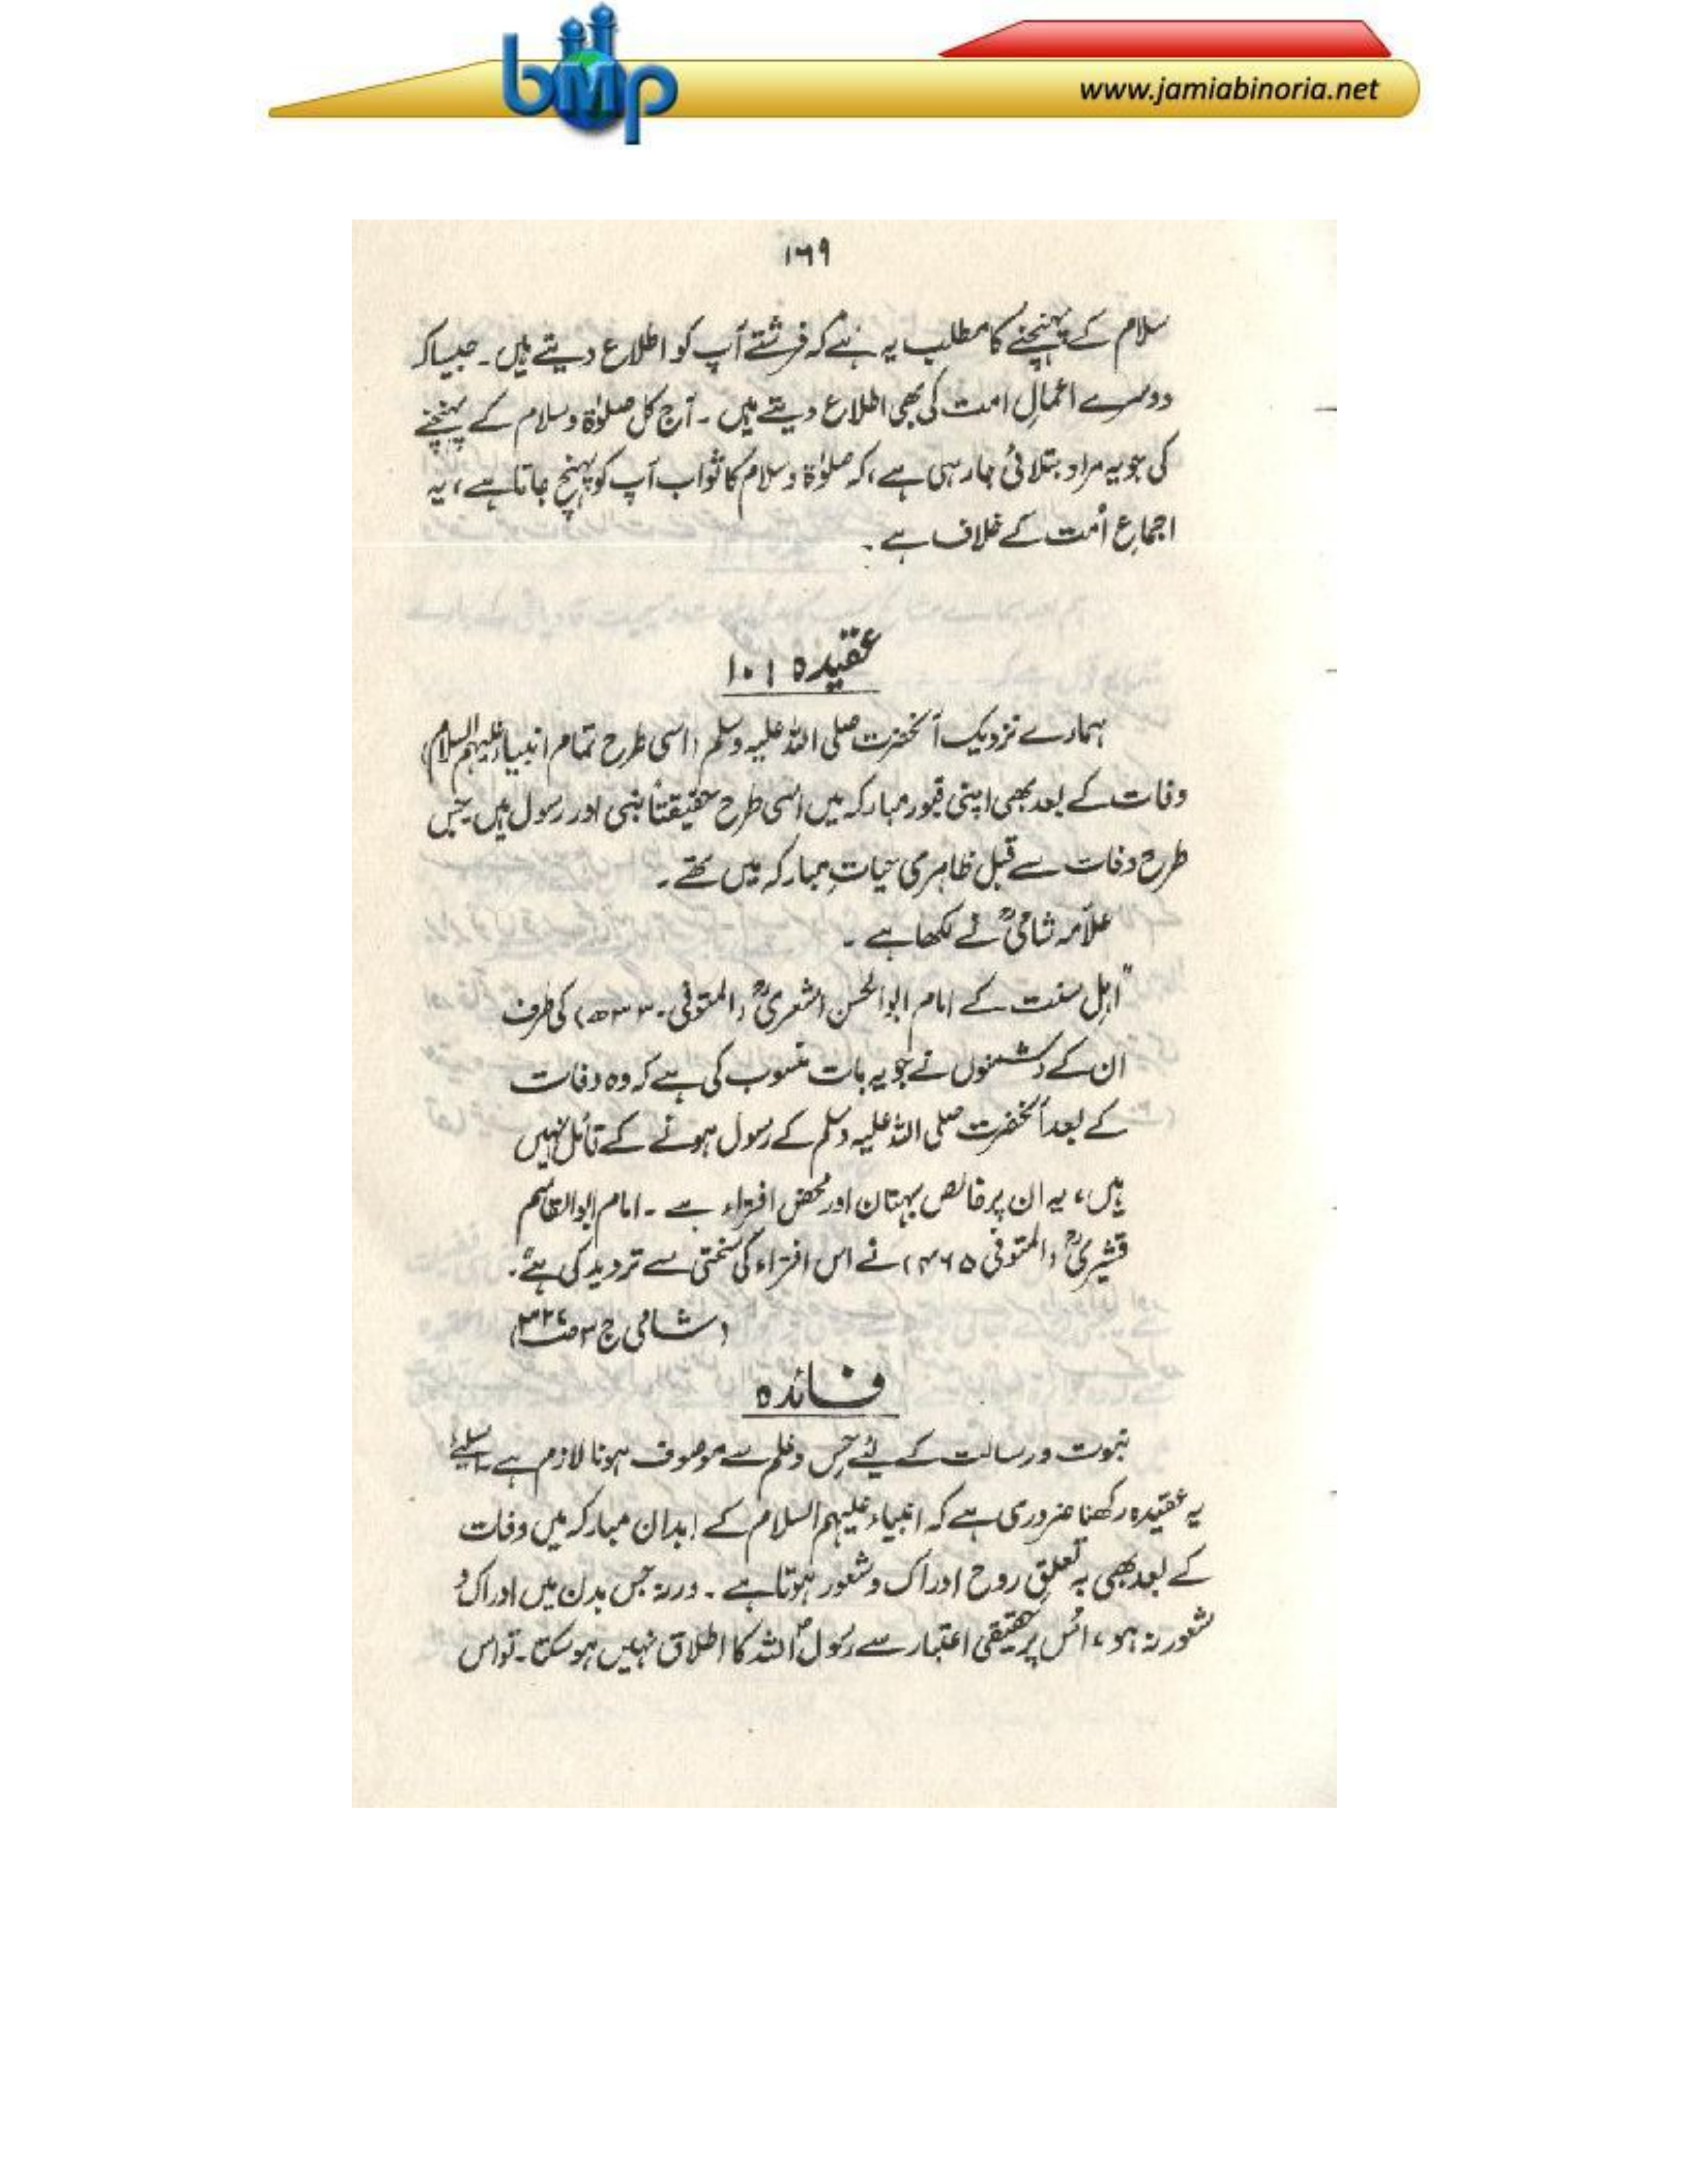 bmp
www.jamiabinoria.net
۱۶۹
سلام کے پہنچنے کا مطلب یہ ہے کہ فرشتے آپ کو اطلاع دیتے ہیں۔ جیسا کہ
دوسرے اعمالِ امت کی بھی اطلاع دیتے ہیں۔ آج کل صلوٰۃ وسلام کے پہنچنے
کی جو یہ مراد بتلائی جا رہی ہے، کہ صلوٰۃ وسلام کا ثواب آپ کو پہنچ جاتا ہے، یہ
اجماعِ اُمت کے خلاف ہے۔
عقیدہ ۱۰۱
ہمارے نزدیک آنحضرت صلی اللہ علیہ وسلم (اسی طرح تمام انبیاء علیہم السلام)
وفات کے بعد بھی اپنی قبور مبارکہ میں اسی طرح حقیقتاً نبی اور رسول ہیں جس
طرح وفات سے قبل ظاہری حیاتِ مبارکہ میں تھے۔
علاّمہ شامیؒ نے لکھا ہے۔
"اہل سنت کے امام ابوالحسن اشعریؒ (المتوفی۔۳۳۰ھ) کی طرف
ان کے دشمنوں نے جو یہ بات منسوب کی ہے کہ وہ وفات
کے بعد آنحضرت صلی اللہ علیہ وسلم کے رسول ہونے کے قائل نہیں
ہیں، یہ ان پر خالص بہتان اور محض افتراء ہے۔ امام ابوالقاسم
قشیریؒ (المتوفی ۴۶۵) نے اس افتراء کی سختی سے تردید کی ہے"۔
(شامی ج ۳ ص)
فائدہ
نبوت ورسالت کے لیٔے حِس وعلم سے موصوف ہونا لازم ہے۔ اسلیے
یہ عقیدہ رکھنا ضروری ہے کہ انبیاء علیہم السلام کے ابدان مبارکہ میں وفات
کے بعد بھی بہ تعلقِ روح ادراک وشعور ہوتا ہے۔ ورنہ جس بدن میں ادراک و
شعور نہ ہو، اُس پر حقیقی اعتبار سے رسول اللہ کا اطلاق نہیں ہو سکتا۔ تو اس